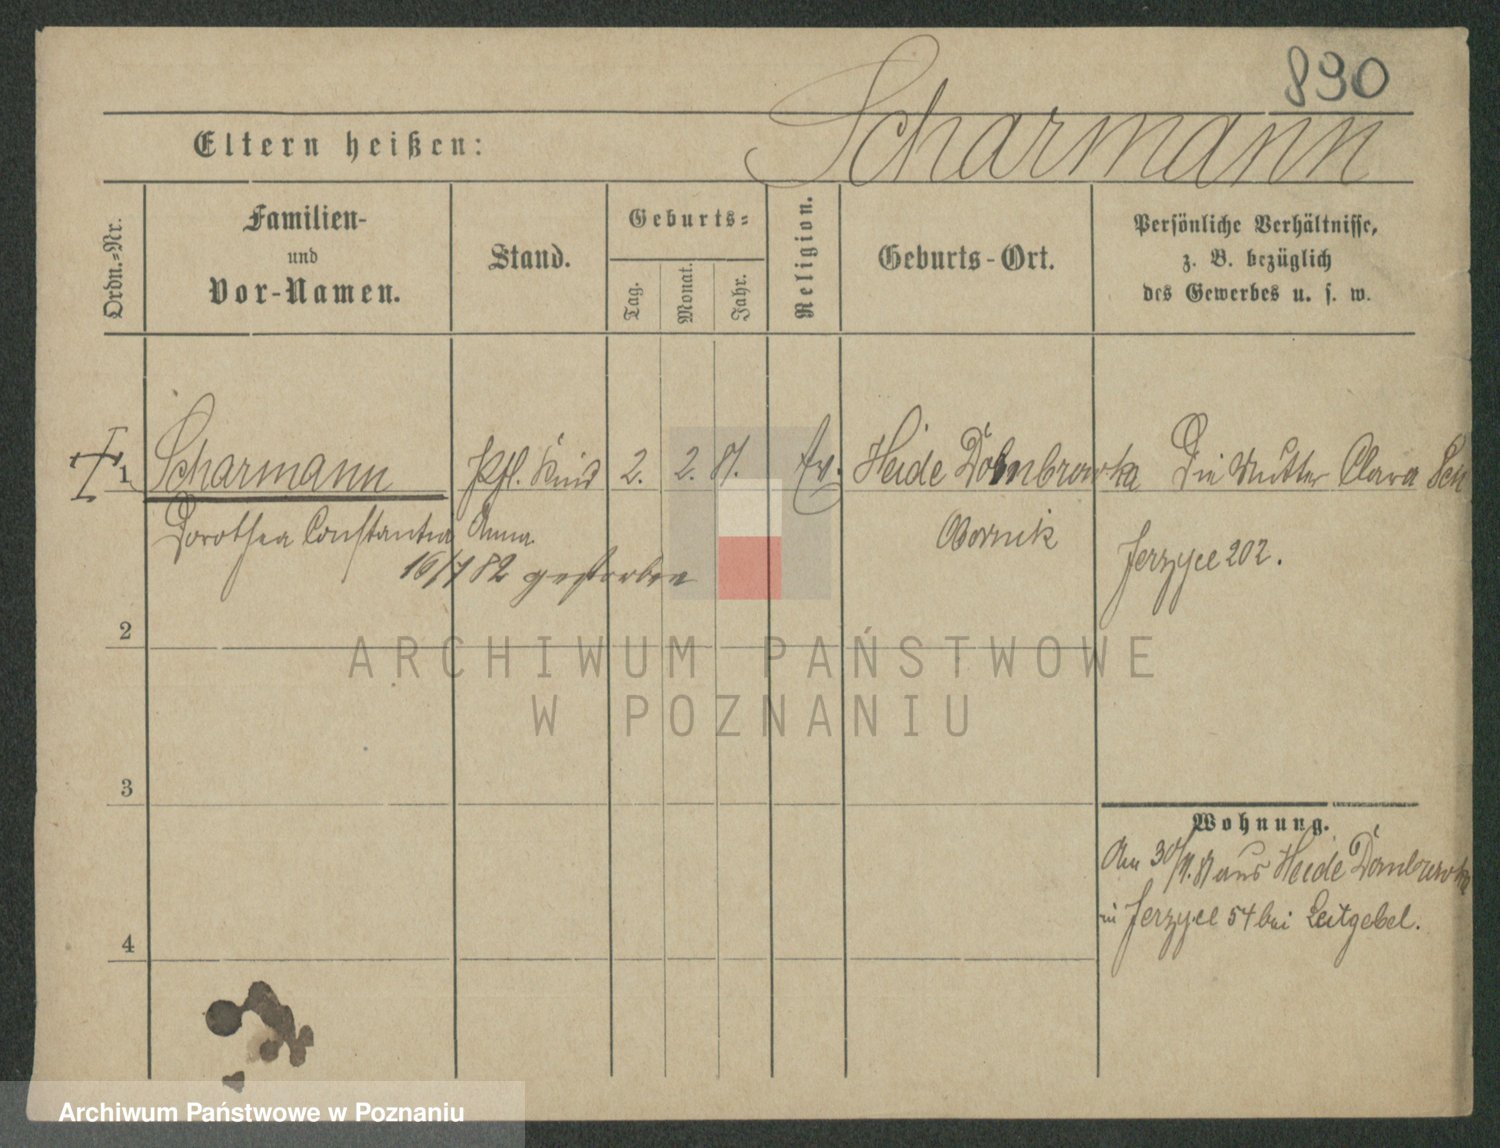 890
Scharmann
Eltern heißen:
Ordn.-Nr.
Familien-
und
Vor-Namen.
Stand.
Geburts-
Tag.
Monat.
Jahr.
Religion.
Geburts-Ort.
Persönliche Verhältnisse,
z. B. bezüglich
des Gewerbes u. s. w.
1 Scharmann Pfl. Kind 2. 2. 81. Ev. Heide Dombrowka Die Mutter Clara Sch
Dorothea Constantia Anna Obornik Jerzyce 202.
16/7 82 gestorben
2
3
4
Wohnung.
Am 30/9.81 aus Heide Dombrowka
in Jerzyce 54 bei Leitgebel.
ARCHIWUM PAŃSTWOWE
W POZNANIU
Archiwum Państwowe w Poznaniu